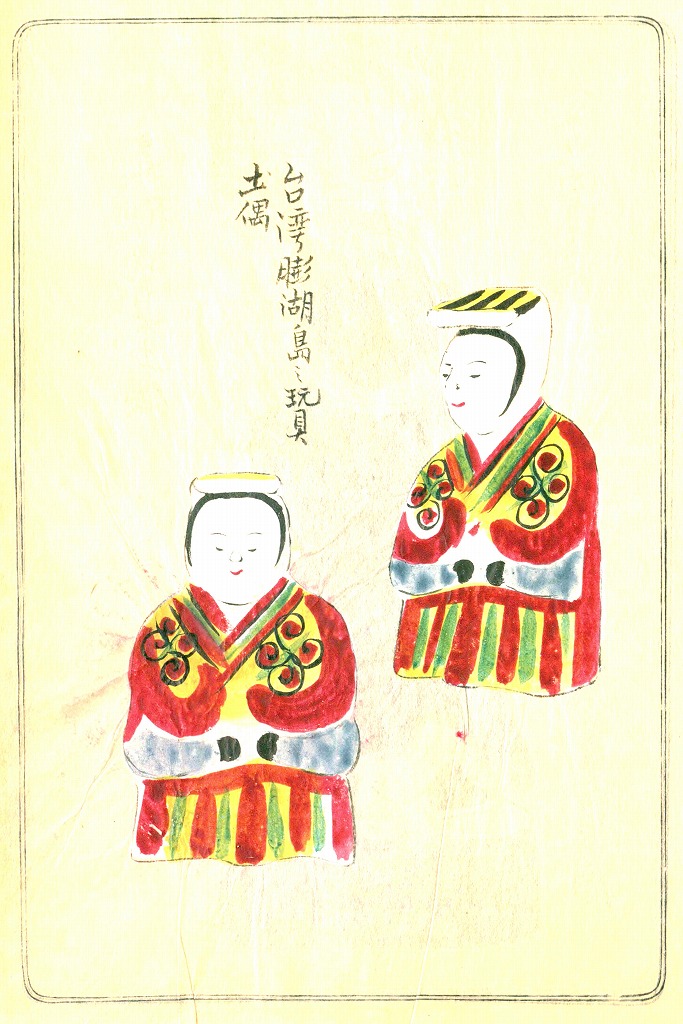 台湾膨湖島之玩具
土偶